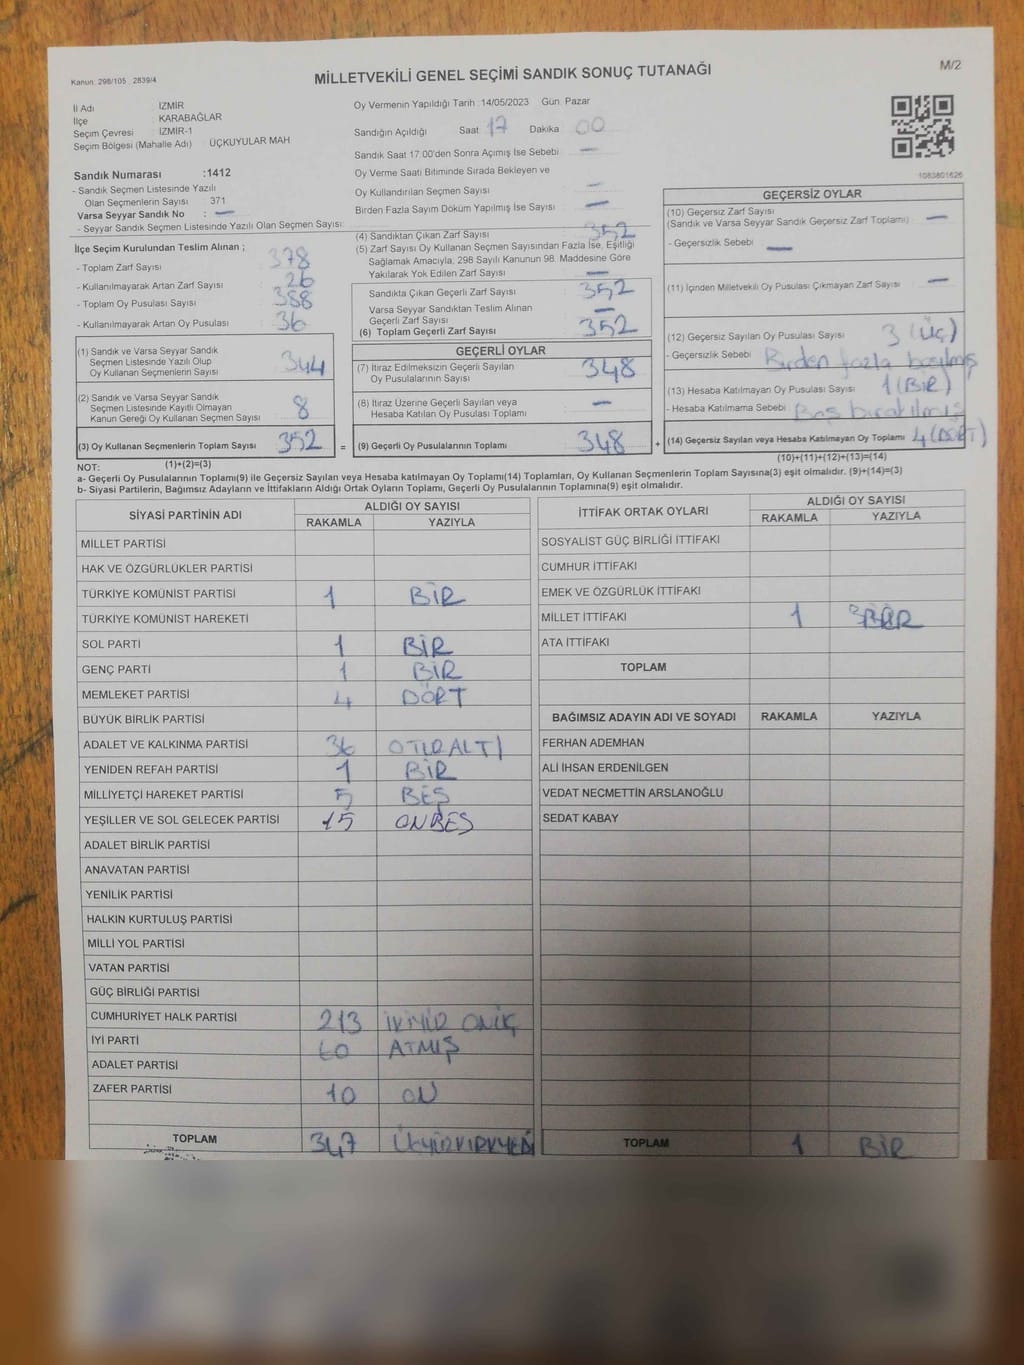 Kanun: 298/105 , 2839/4
MİLLETVEKİLİ GENEL SEÇİMİ SANDIK SONUÇ TUTANAĞI
M/2
İl Adı İZMİR
İlçe KARABAĞLAR
Seçim Çevresi : İZMİR-1
Seçim Bölgesi (Mahalle Adı) ÜÇKUYULAR MAH
Sandık Numarası :1412
- Sandık Seçmen Listesinde Yazılı
Olan Seçmenlerin Sayısı 371
Varsa Seyyar Sandık No : —
- Seyyar Sandık Seçmen Listesinde Yazılı Olan Seçmen Sayısı:
İlçe Seçim Kurulundan Teslim Alınan ;
- Toplam Zarf Sayısı : 378
- Kullanılmayarak Artan Zarf Sayısı : 26
- Toplam Oy Pusulası Sayısı : 388
- Kullanılmayarak Artan Oy Pusulası : 36
(1) Sandık ve Varsa Seyyar Sandık
Seçmen Listesinde Yazılı Olup
Oy Kullanan Seçmenlerin Sayısı 344
(2) Sandık ve Varsa Seyyar Sandık
Seçmen Listesinde Kayıtlı Olmayan
Kanun Gereği Oy Kullanan Seçmen Sayısı 8
(3) Oy Kullanan Seçmenlerin Toplam Sayısı 352 =
(1)+(2)=(3)
Oy Vermenin Yapıldığı Tarih :14/05/2023 Gün: Pazar
Sandığın Açıldığı Saat 17 Dakika 00
Sandık Saat 17:00'den Sonra Açımış İse Sebebi —
Oy Verme Saati Bitiminde Sırada Bekleyen ve
Oy Kullandırılan Seçmen Sayısı —
Birden Fazla Sayım Döküm Yapılmış İse Sayısı —
(4) Sandıktan Çıkan Zarf Sayısı 352
(5) Zarf Sayısı Oy Kullanan Seçmen Sayısından Fazla İse, Eşitliği
Sağlamak Amacıyla, 298 Sayılı Kanunun 98. Maddesine Göre
Yakılarak Yok Edilen Zarf Sayısı —
Sandıkta Çıkan Geçerli Zarf Sayısı : 352
Varsa Seyyar Sandıktan Teslim Alınan
Geçerli Zarf Sayısı —
(6) Toplam Geçerli Zarf Sayısı : 352
GEÇERLİ OYLAR
(7) İtiraz Edilmeksizin Geçerli Sayılan
Oy Pusulalarının Sayısı 348
(8) İtiraz Üzerine Geçerli Sayılan veya
Hesaba Katılan Oy Pusulası Toplamı —
(9) Geçerli Oy Pusulalarının Toplamı 348 +
1083801626
GEÇERSİZ OYLAR
(10) Geçersiz Zarf Sayısı
(Sandık ve Varsa Seyyar Sandık Geçersiz Zarf Toplamı) —
- Geçersizlik Sebebi : —
(11) İçinden Milletvekili Oy Pusulası Çıkmayan Zarf Sayısı —
(12) Geçersiz Sayılan Oy Pusulası Sayısı 3 (Üç)
- Geçersizlik Sebebi : Birden fazla basılmış
(13) Hesaba Katılmayan Oy Pusulası Sayısı 1 (BİR)
- Hesaba Katılmama Sebebi : Boş bırakılmış
(14) Geçersiz Sayılan veya Hesaba Katılmayan Oy Toplamı 4 (DÖRT)
(10)+(11)+(12)+(13)=(14)
NOT:
a- Geçerli Oy Pusulalarının Toplamı(9) ile Geçersiz Sayılan veya Hesaba katılmayan Oy Toplamı(14) Toplamları, Oy Kullanan Seçmenlerin Toplam Sayısına(3) eşit olmalıdır. (9)+(14)=(3)
b- Siyasi Partilerin, Bağımsız Adayların ve İttifakların Aldığı Ortak Oyların Toplamı, Geçerli Oy Pusulalarının Toplamına(9) eşit olmalıdır.
SİYASİ PARTİNİN ADI ALDIĞI OY SAYISI
RAKAMLA YAZIYLA
MİLLET PARTİSİ
HAK VE ÖZGÜRLÜKLER PARTİSİ
TÜRKİYE KOMÜNİST PARTİSİ 1 BİR
TÜRKİYE KOMÜNİST HAREKETİ
SOL PARTİ 1 BİR
GENÇ PARTİ 1 BİR
MEMLEKET PARTİSİ 4 DÖRT
BÜYÜK BİRLİK PARTİSİ
ADALET VE KALKINMA PARTİSİ 36 OTUZALTI
YENİDEN REFAH PARTİSİ 1 BİR
MİLLİYETÇİ HAREKET PARTİSİ 5 BEŞ
YEŞİLLER VE SOL GELECEK PARTİSİ 15 ONBEŞ
ADALET BİRLİK PARTİSİ
ANAVATAN PARTİSİ
YENİLİK PARTİSİ
HALKIN KURTULUŞ PARTİSİ
MİLLİ YOL PARTİSİ
VATAN PARTİSİ
GÜÇ BİRLİĞİ PARTİSİ
CUMHURİYET HALK PARTİSİ 213 İKİYÜZ ONÜÇ
İYİ PARTİ 60 ATMIŞ
ADALET PARTİSİ
ZAFER PARTİSİ 10 ON
TOPLAM 347 ÜÇYÜZKIRKYEDİ
İTTİFAK ORTAK OYLARI ALDIĞI OY SAYISI
RAKAMLA YAZIYLA
SOSYALİST GÜÇ BİRLİĞİ İTTİFAKI
CUMHUR İTTİFAKI
EMEK VE ÖZGÜRLÜK İTTİFAKI
MİLLET İTTİFAKI 1 BİR
ATA İTTİFAKI
TOPLAM
BAĞIMSIZ ADAYIN ADI VE SOYADI RAKAMLA YAZIYLA
FERHAN ADEMHAN
ALİ İHSAN ERDENİLGEN
VEDAT NECMETTİN ARSLANOĞLU
SEDAT KABAY
TOPLAM 1 BİR